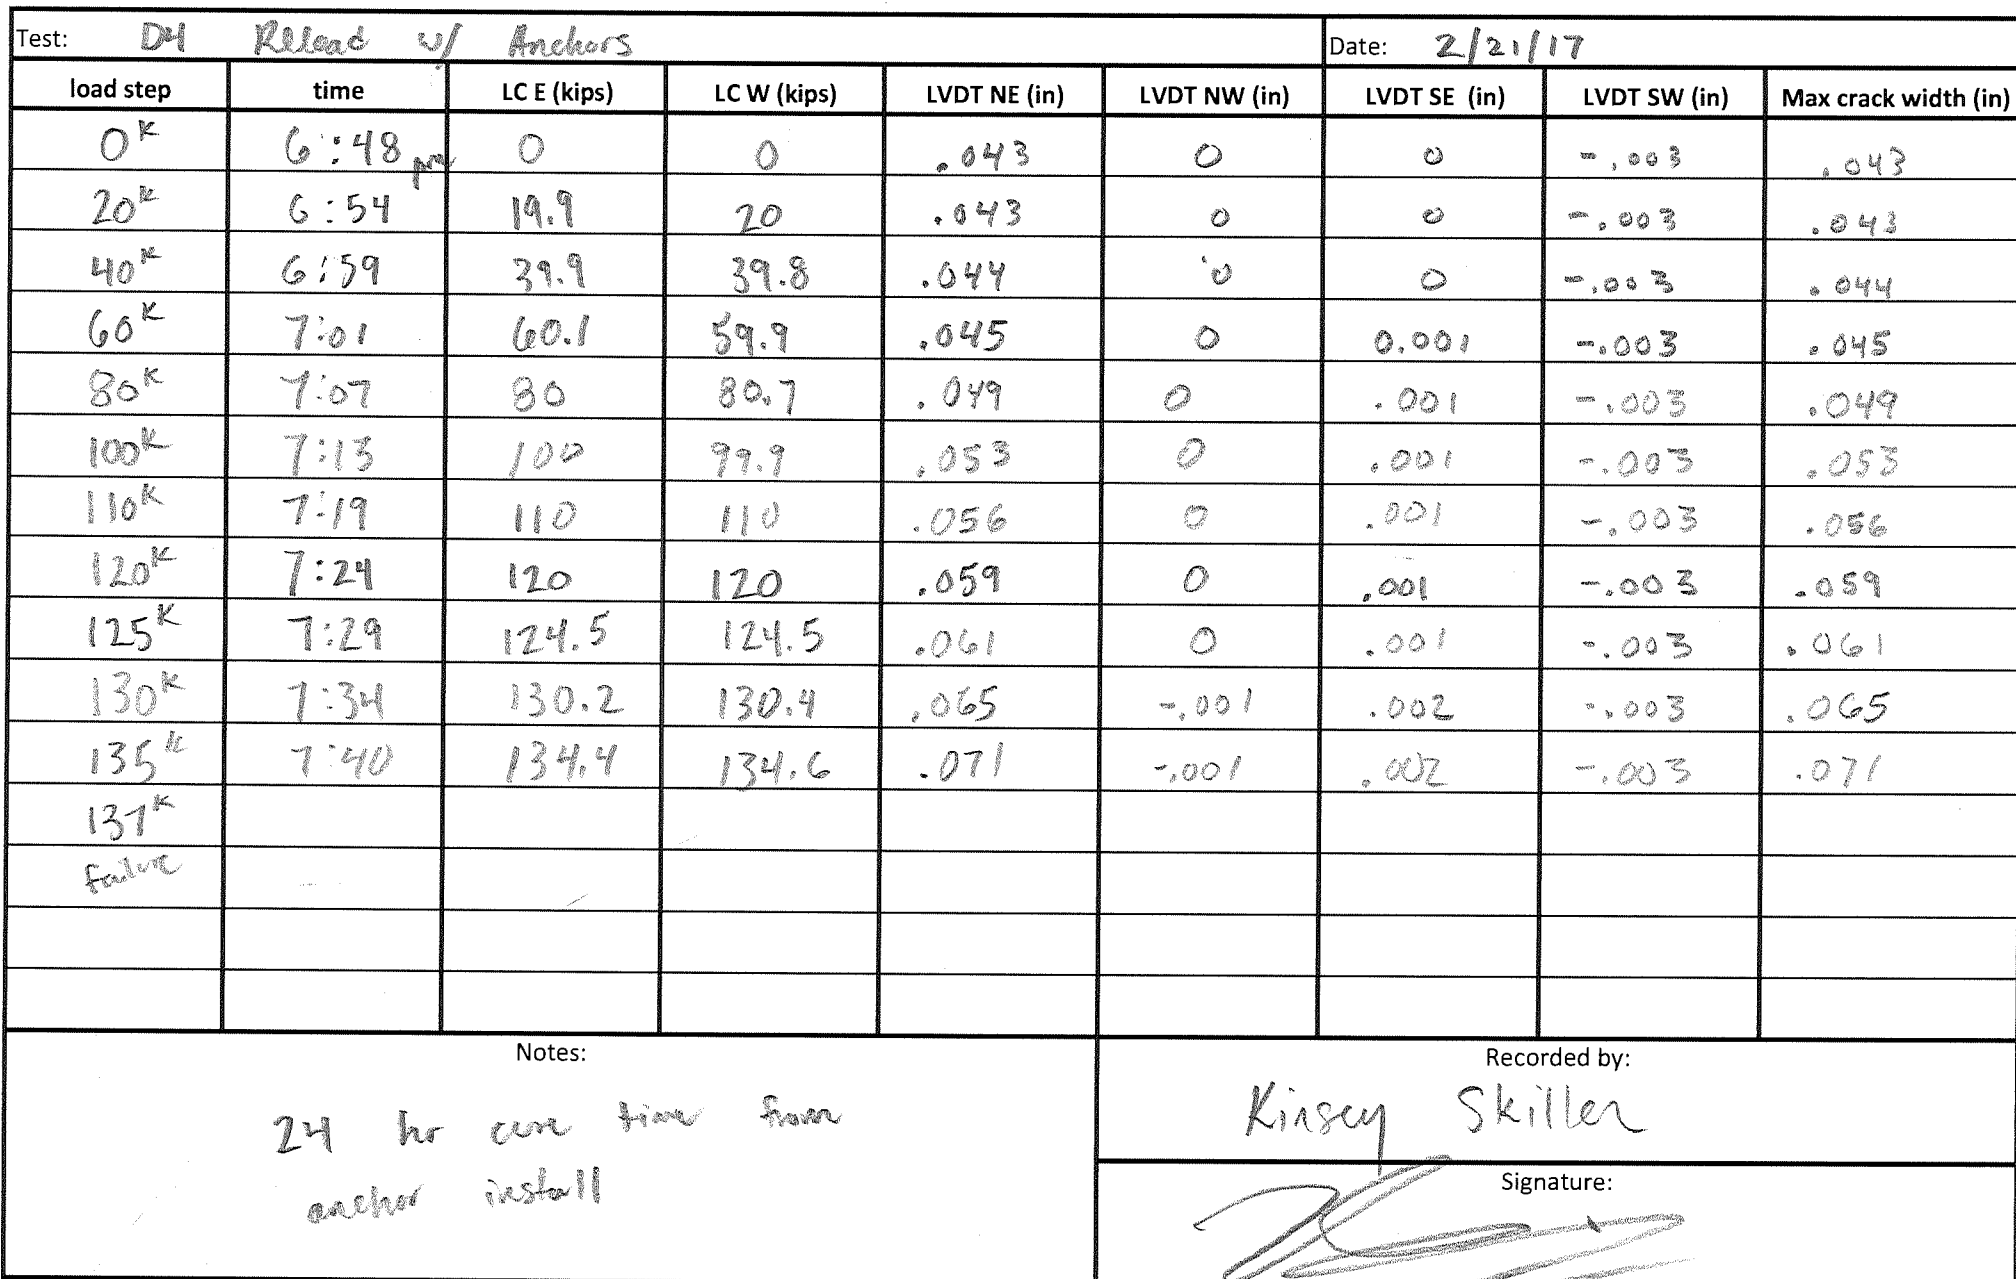 Test: D4 Reload w/ Anchors Date: 2/21/17
load step time LC E (kips) LC W (kips) LVDT NE (in) LVDT NW (in) LVDT SE (in) LVDT SW (in) Max crack width (in)
0K 6:48 pm 0 0 .043 0 0 -.003 .043
20K 6:54 19.9 20 .043 0 0 -.003 .043
40K 6:59 39.9 39.8 .044 0 0 -.003 .044
60K 7:01 60.1 59.9 .045 0 0.001 -.003 .045
80K 7:07 80 80.7 .049 0 .001 -.003 .049
100K 7:13 100 99.9 .053 0 .001 -.003 .053
110K 7:19 110 110 .056 0 .001 -.003 .056
120K 7:24 120 120 .059 0 .001 -.003 .059
125K 7:29 124.5 124.5 .061 0 .001 -.003 .061
130K 7:34 130.2 130.4 .065 -.001 .002 -.003 .065
135K 7:40 134.4 134.6 .071 -.001 .002 -.003 .071
137K
failure
Notes:
24 hr cure time from
anchor install
Recorded by:
Kinsey Skillen
Signature: